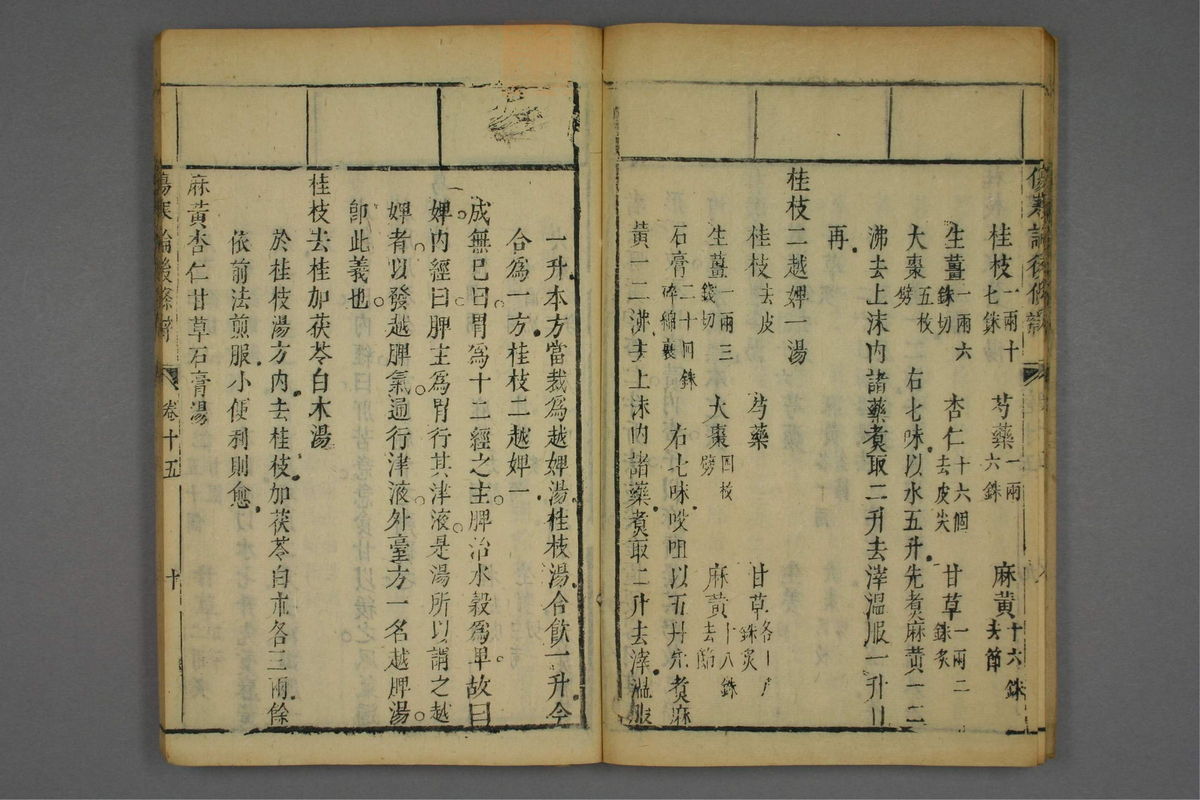 桂枝一兩十七銖 芍藥一兩六銖 麻黃十六銖去節
生薑一兩六銖切 杏仁十六個去皮尖 甘草一兩二銖炙
大棗五枚劈 右七味以水五升先煮麻黃一二
沸去上沫內諸藥煮取二升去滓溫服一升日
再
桂枝二越婢一湯
桂枝去皮 芍藥 甘草各十八銖炙
生薑一兩三錢切 大棗四枚劈 麻黃十八銖去節
石膏二十四銖碎綿裹 右七味㕮咀以五升先煮麻
黃一二沸去上沫內諸藥煮取二升去滓溫服
一升本方當裁爲越婢湯桂枝湯合飲一升今
合爲一方桂枝二越婢一
成無已曰胃爲十二經之主脾治水穀爲卑故曰
婢內經曰脾主爲胃行其津液是湯所以謂之越
婢者以發越脾氣通行津液外臺方一名越脾湯
卽此義也
桂枝去桂加茯苓白木湯
於桂枝湯方內去桂枝加茯苓白朮各三兩餘
依前法煎服小便利則愈
麻黃杏仁甘草石膏湯
傷寒論後條辯 卷十五 十